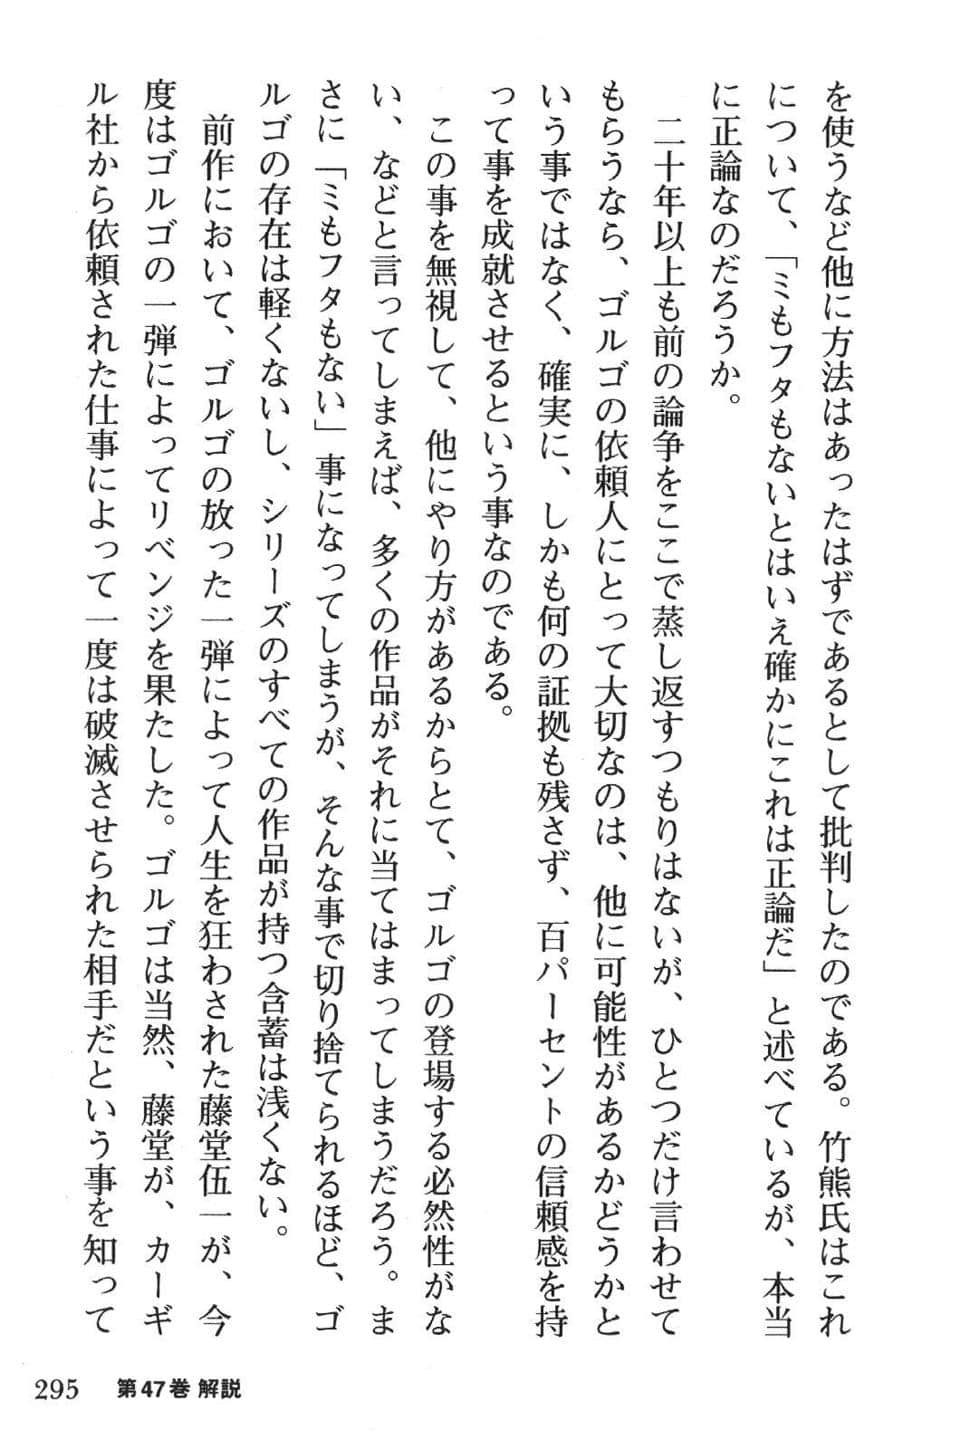 を使うなど他に方法はあったはずであるとして批判したのである。竹熊氏はこれ
について、「ミもフタもないとはいえ確かにこれは正論だ」と述べているが、本当
に正論なのだろうか。
二十年以上も前の論争をここで蒸し返すつもりはないが、ひとつだけ言わせて
もらうなら、ゴルゴの依頼人にとって大切なのは、他に可能性があるかどうかと
いう事ではなく、確実に、しかも何の証拠も残さず、百パーセントの信頼感を持
って事を成就させるという事なのである。
この事を無視して、他にやり方があるからとて、ゴルゴの登場する必然性がな
い、などと言ってしまえば、多くの作品がそれに当てはまってしまうだろう。ま
さに「ミもフタもない」事になってしまうが、そんな事で切り捨てられるほど、ゴ
ルゴの存在は軽くないし、シリーズのすべての作品が持つ含蓄は浅くない。
前作において、ゴルゴの放った一弾によって人生を狂わされた藤堂伍一が、今
度はゴルゴの一弾によってリベンジを果たした。ゴルゴは当然、藤堂が、カーギ
ル社から依頼された仕事によって一度は破滅させられた相手だという事を知って
295 第47巻 解説